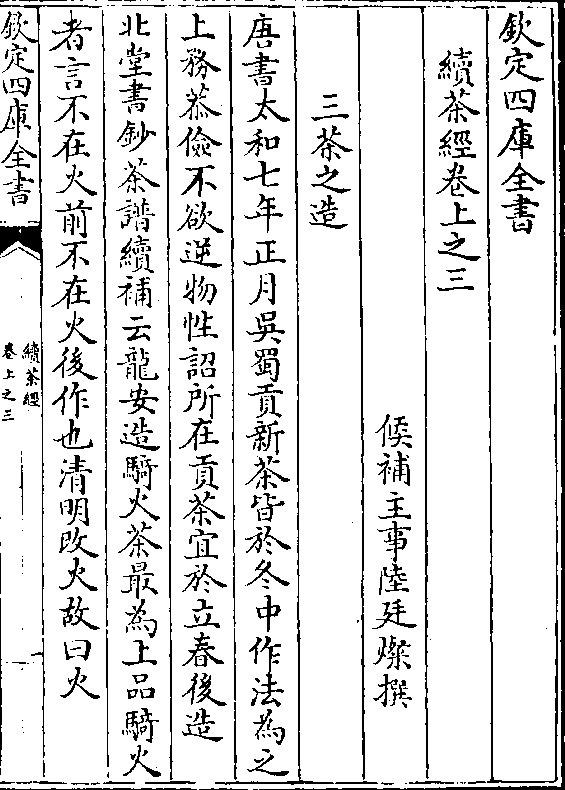 欽定四庫全書
續茶經卷上之三
候補主事陸廷燦撰
三茶之造
唐書太和七年正月吳蜀貢新茶皆於冬中作法為之
上務恭儉不欲逆物性詔所在貢茶宜於立春後造
北堂書鈔茶譜續補云龍安造騎火茶最為上品騎火
者言不在火前不在火後作也清明改火故曰火
欽定四庫全書
續茶經
卷上之三